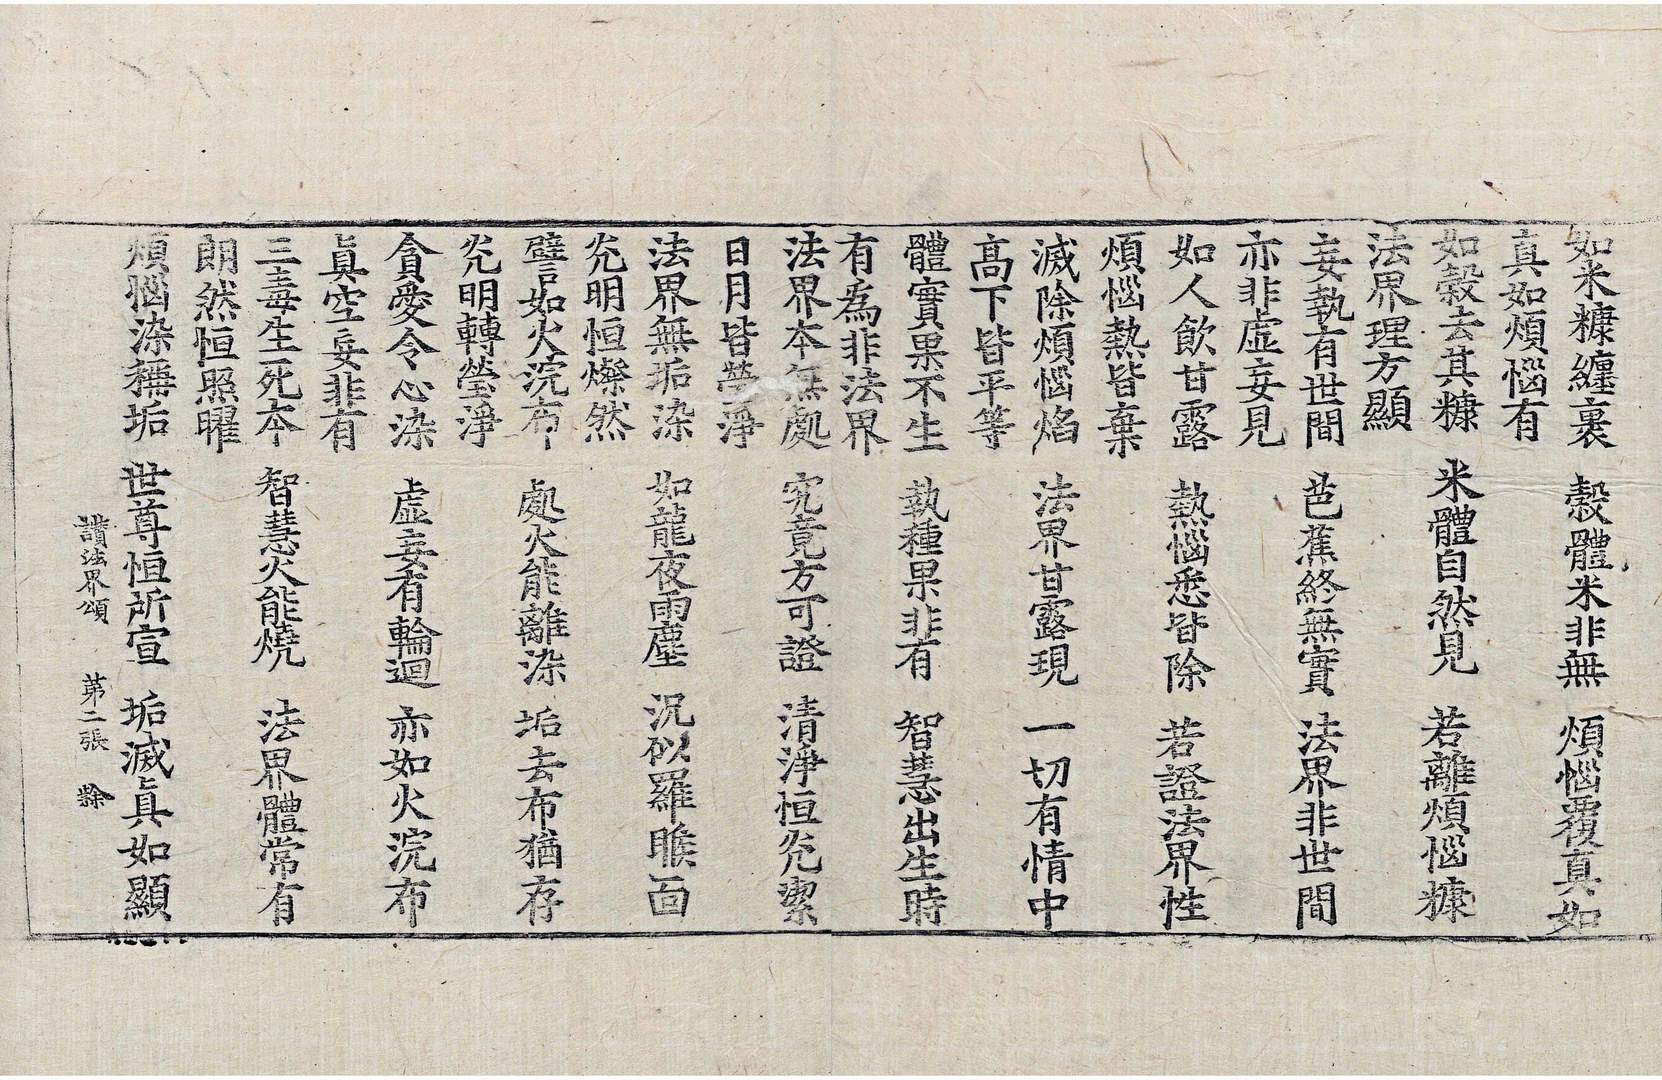 如米糠纏裹 穀體米非無 煩惱覆真如
真如煩惱有
如穀去其糠 米體自然見 若離煩惱糠
法界理方顯
妄執有世間 芭蕉終無實 法界非世間
亦非虛妄見
如人飲甘露 熱惱悉皆除 若證法界性
煩惱熱皆棄
滅除煩惱焰 法界甘露現 一切有情中
高下皆平等
體實果不生 執種果非有 智慧出生時
有爲非法界
法界本無處 究竟方可證 清淨恒光潔
日月皆瑩淨
法界無垢染 如龍夜雨塵 況似羅睺面
光明恒燦然
譬如火浣布 處火能離染 垢去布猶存
光明轉瑩淨
貪愛令心染 虛妄有輪迴 亦如火浣布
真空妄非有
三毒生死本 智慧火能燒 法界體常有
朗然恒照曜
煩惱染稱垢 世尊恒所宣 垢滅真如顯
讚法界頌 第二張